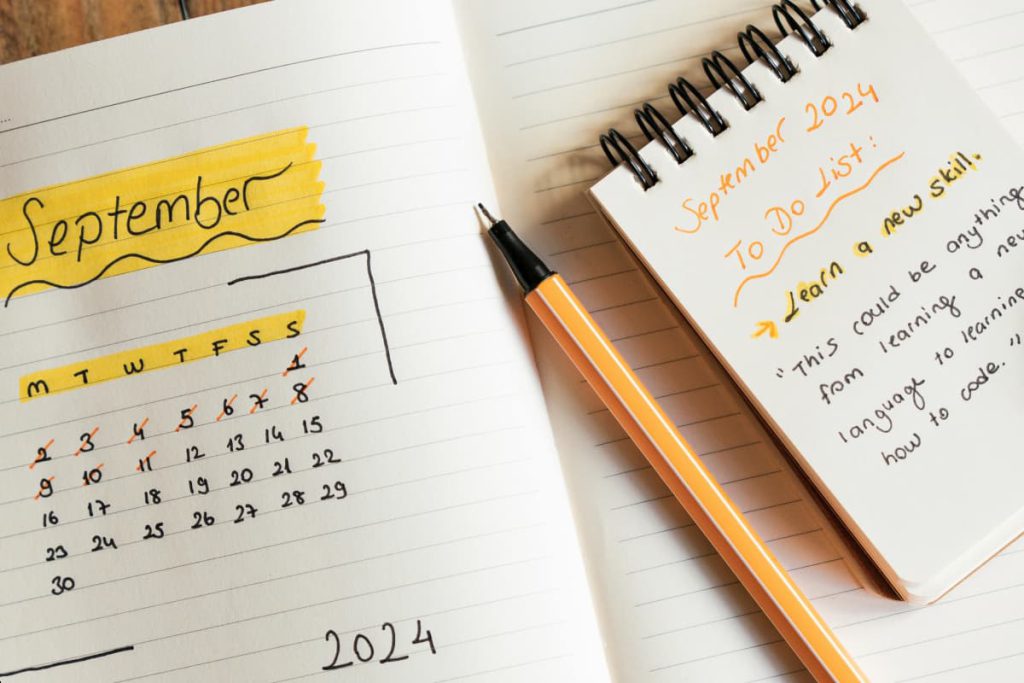 September
M T W T F S S
1
2 3 4 5 6 7 8
9 10 11 12 13 14 15
16 17 18 19 20 21 22
23 24 25 26 27 28 29
30
2024
September 2024
To Do List:
→ Learn a new skill.
"This could be anything
from learning a new
language to learning
how to code."